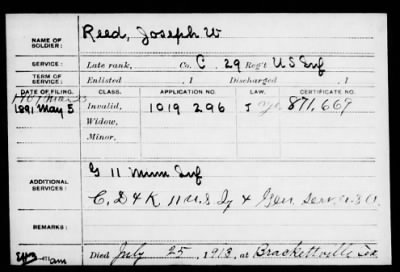 NAME OF SOLDIER: Reed, Joseph W
SERVICE: Late rank, Co. C, 29 Reg't US Inf
TERM OF SERVICE: Enlisted , 1 Discharged , 1
DATE OF FILING. CLASS. APPLICATION NO. LAW. CERTIFICATE NO.
1891 May 5 Invalid, 1019 296 J 871,667
Widow,
Minor,
ADDITIONAL SERVICES: G 11 Minn Inf
C, D & K 11 U.S. & Gen Serv U.S.A.
REMARKS:
Died July 25, 1913, at Brackettville Tex